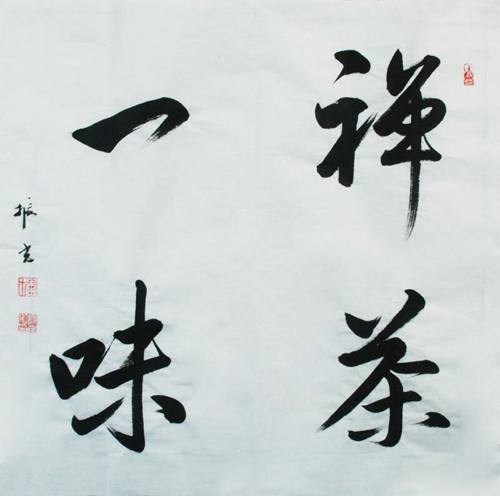 禅茶
一味
振书